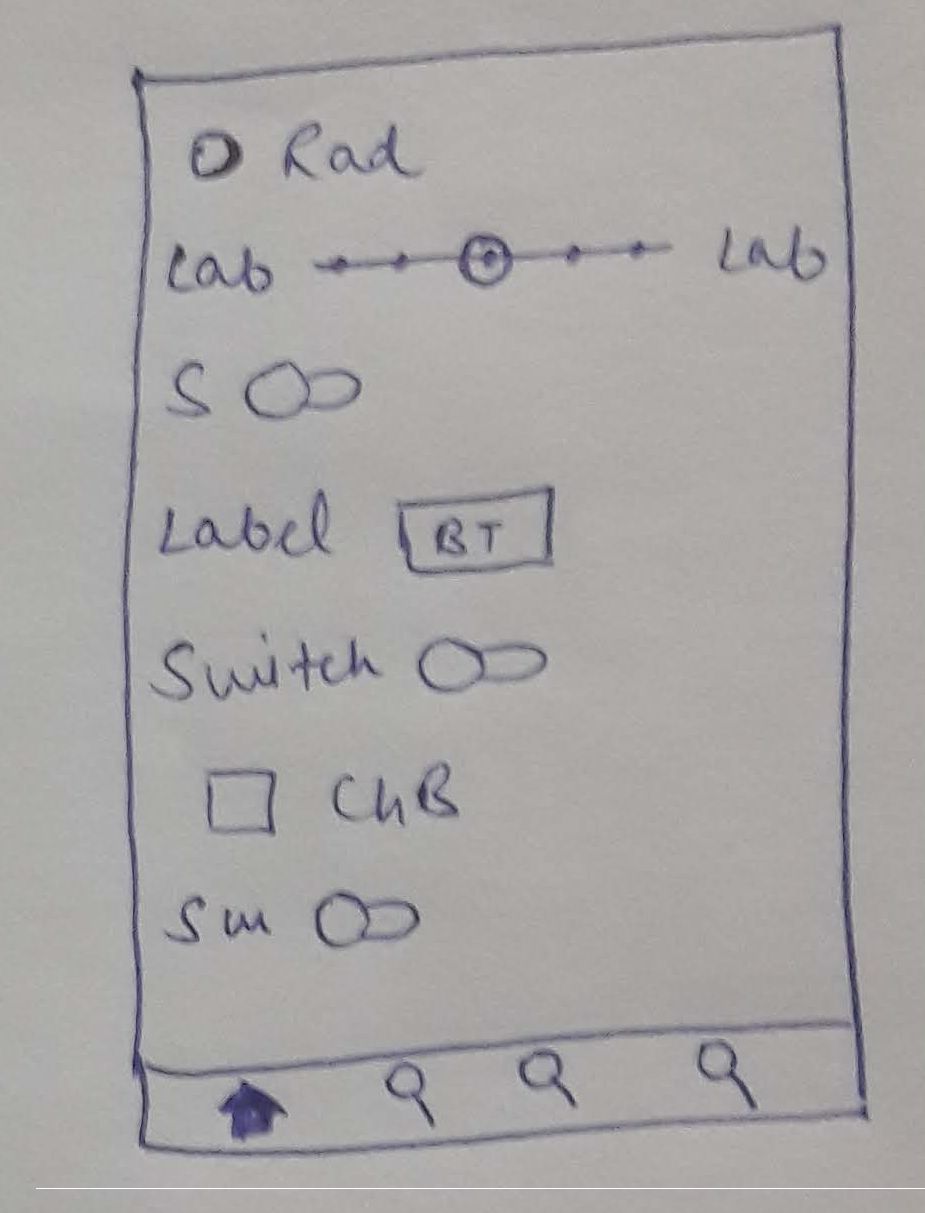 Rad
Lab Lab
S
Label BT
Switch
ChB
Sw